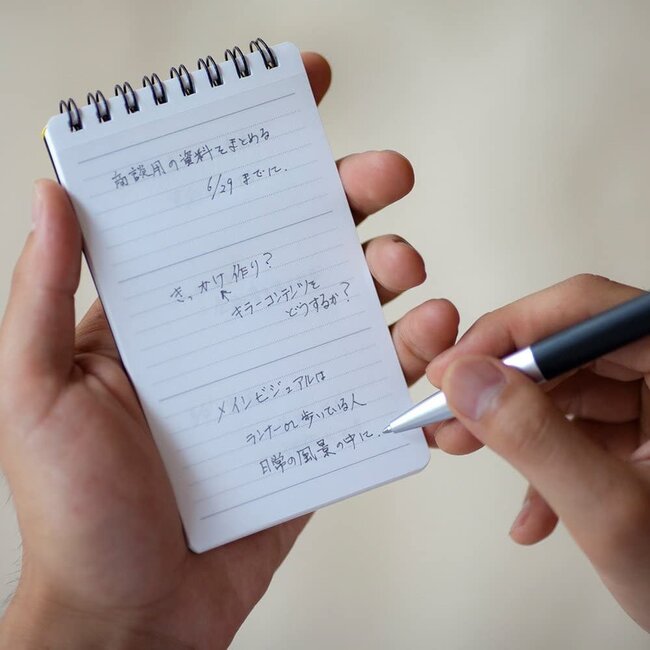 商談用の資料をまとめる
6/29 までに.
きっかけ作り?
↖ キラーコンテンツを
どうするか?
メインビジュアルは
ランナー or 歩いている人
日常の風景の中に.